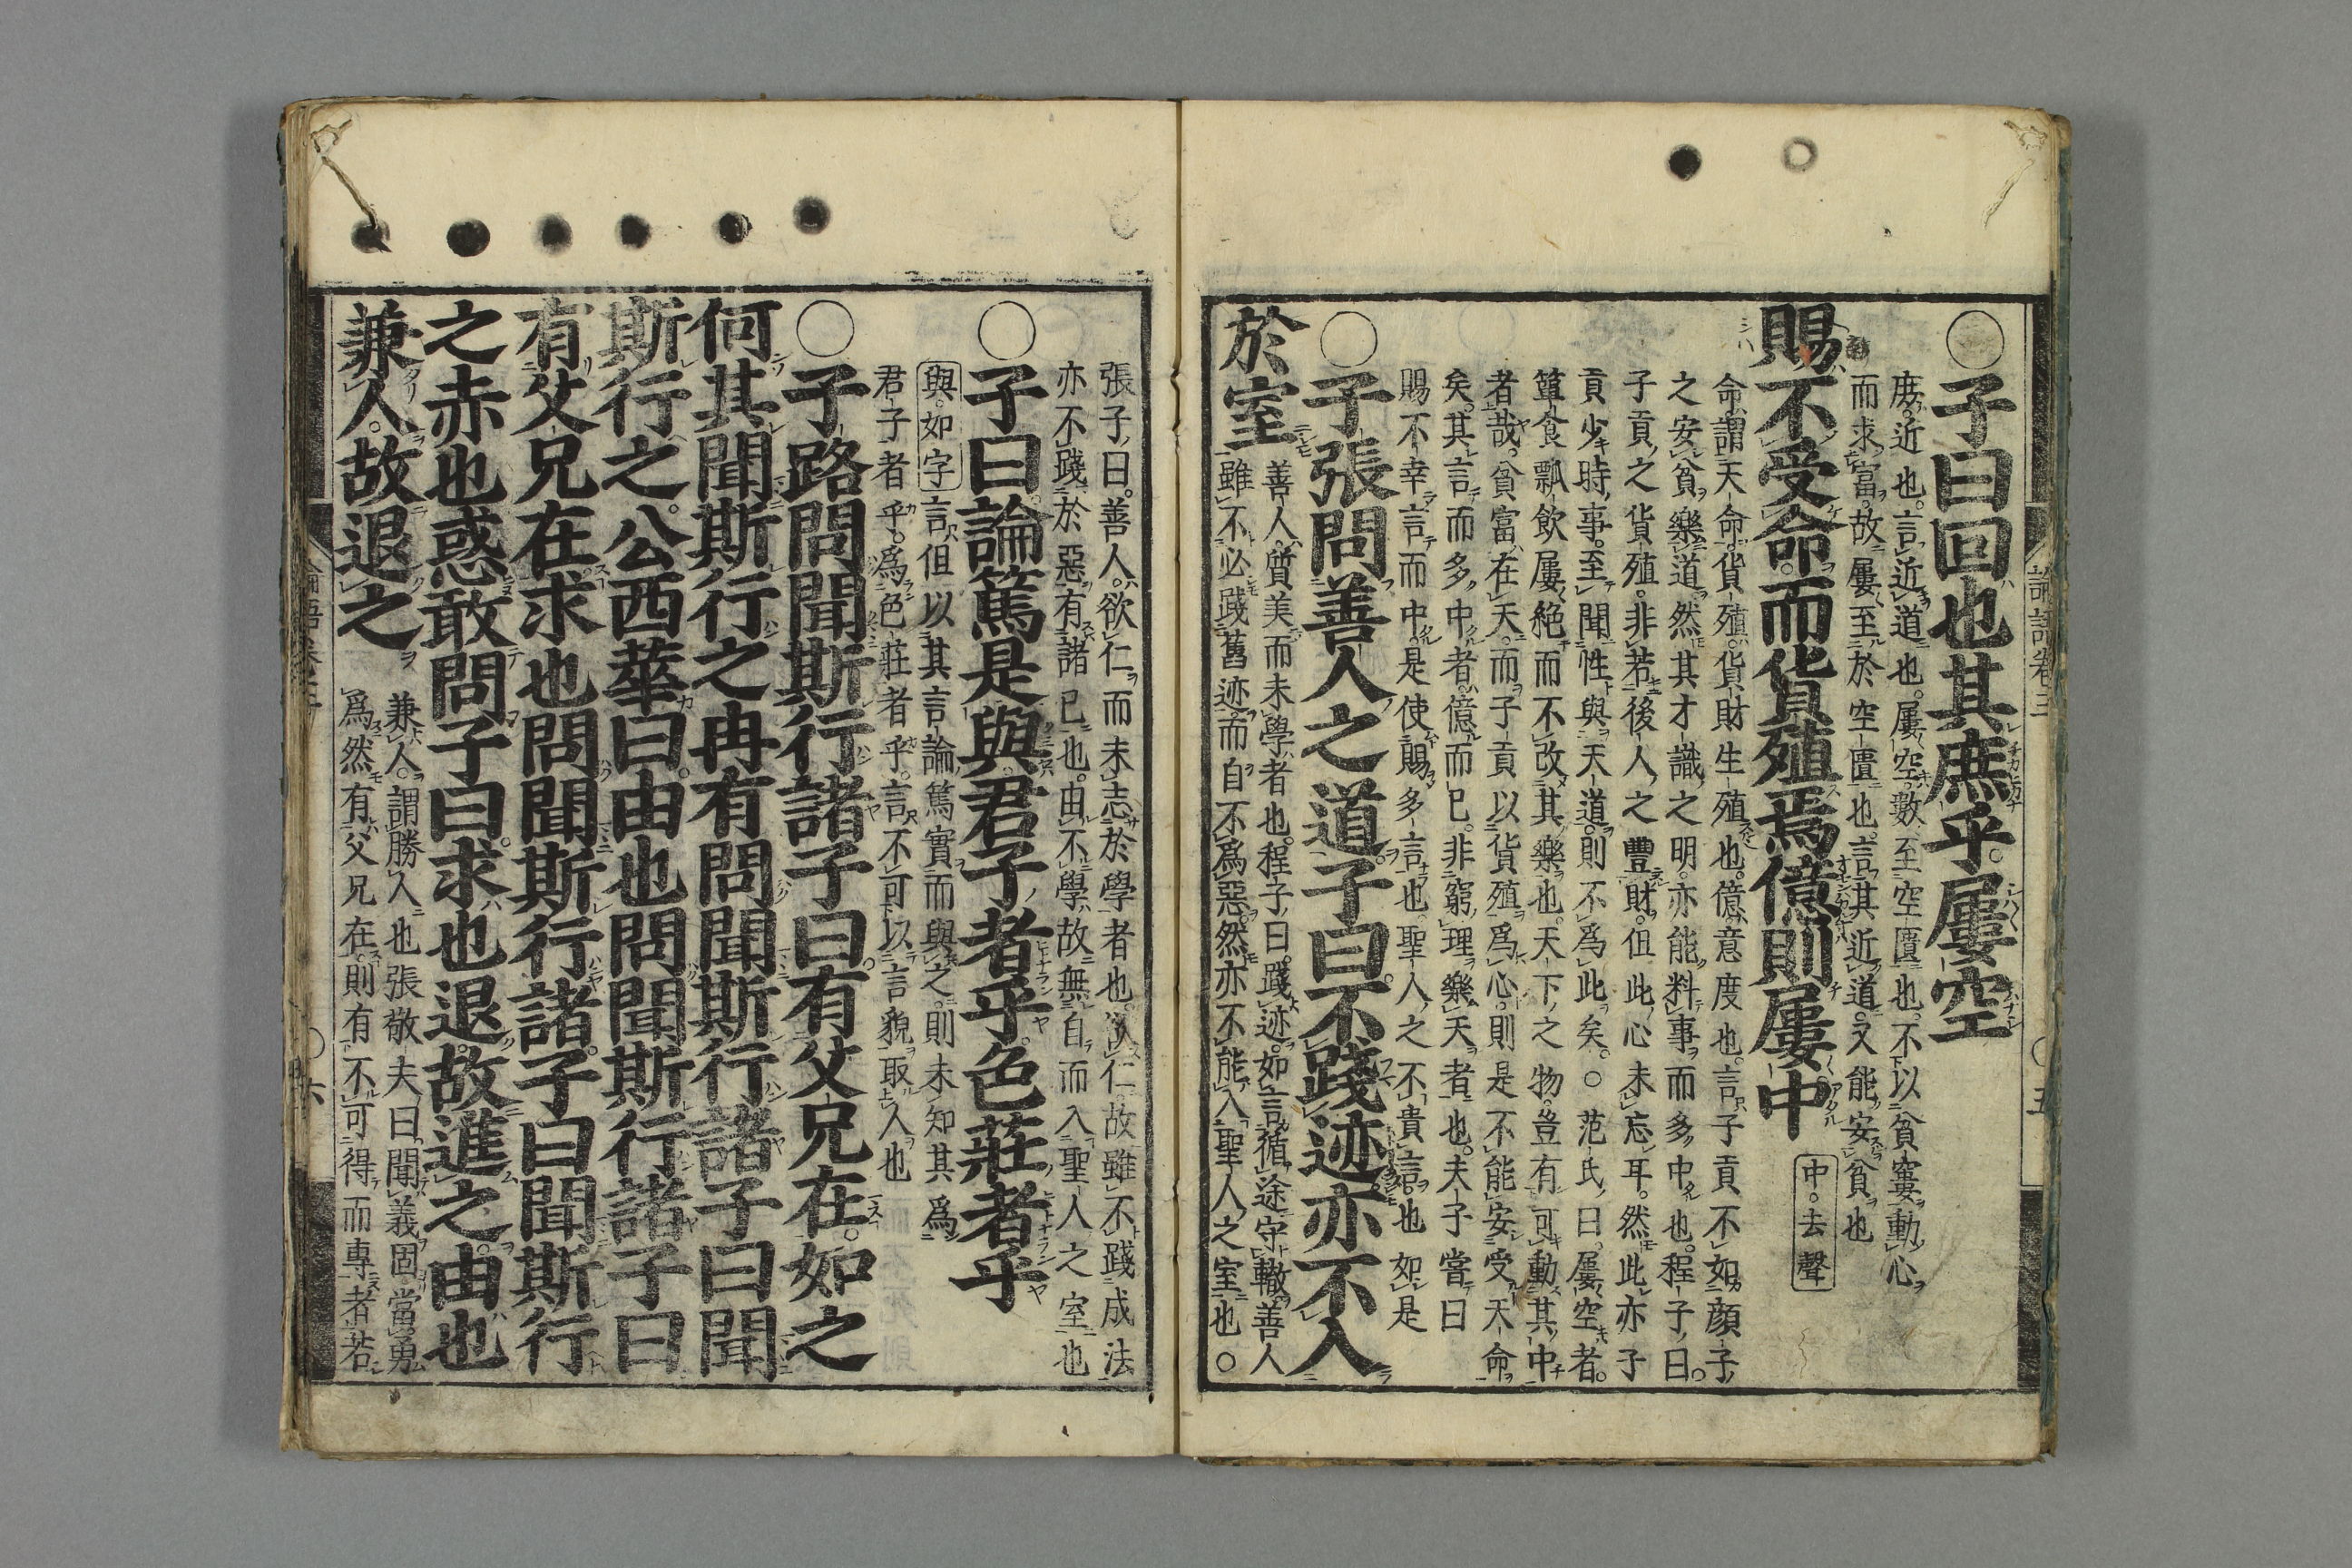 論語卷三
○五
○子曰回也其庶乎屢空
庶。近也。言近道也。屢空。數至空匱也。不以貧窶動心
而求富。故屢至於空匱也。言其近道。又能安貧也
賜不受命而貨殖焉億則屢中
中。去聲
命謂天命。貨殖。貨財生殖也。億。意度也。言子貢不如顏子
之安貧樂道。然其才識之明。亦能料事而多中也。程子曰。
子貢之貨殖。非若後人之豐財。但此心未忘耳。然此亦子
貢少時事。至聞性與天道。則不爲此矣。○范氏曰。屢空者。
簞食瓢飲屢絕而不改其樂也。天下之物。豈有可動其中
者哉。貧富在天。而子貢以貨殖爲心。則是不能安受天命
矣。其言而多中者。億而已。非窮理樂天者也。夫子嘗曰
賜不幸言而中。是使賜多言也。聖人之不貴言也如是
○子張問善人之道子曰不踐迹亦不入
於室
善人。質美而未學者也。程子曰。踐迹。如言循途守轍。善人
雖不必踐舊迹。而自不爲惡。然亦不能入聖人之室也○
張子曰。善人。欲仁而未志於學者也。欲仁。故雖不踐成法
亦不踐於惡。有諸已也。由不學。故無自而入聖人之室也
○子曰論篤是與君子者乎色莊者乎
與。如字
言但以其言論篤實而與之。則未知其爲
君子者乎。爲色莊者乎。言不可以言貌取人也
○子路問聞斯行諸子曰有父兄在。如之
何其聞斯行之冉有問聞斯行諸子曰聞
斯行之。公西華曰。由也問聞斯行諸子曰
有父兄在。求也問聞斯行諸。子曰聞斯行
之赤也惑敢問子曰。求也退。故進之。由也
兼人。故退之
兼人。謂勝人也張敬夫曰。聞義固當勇
爲然有父兄在。則有不可得而專者若
○六